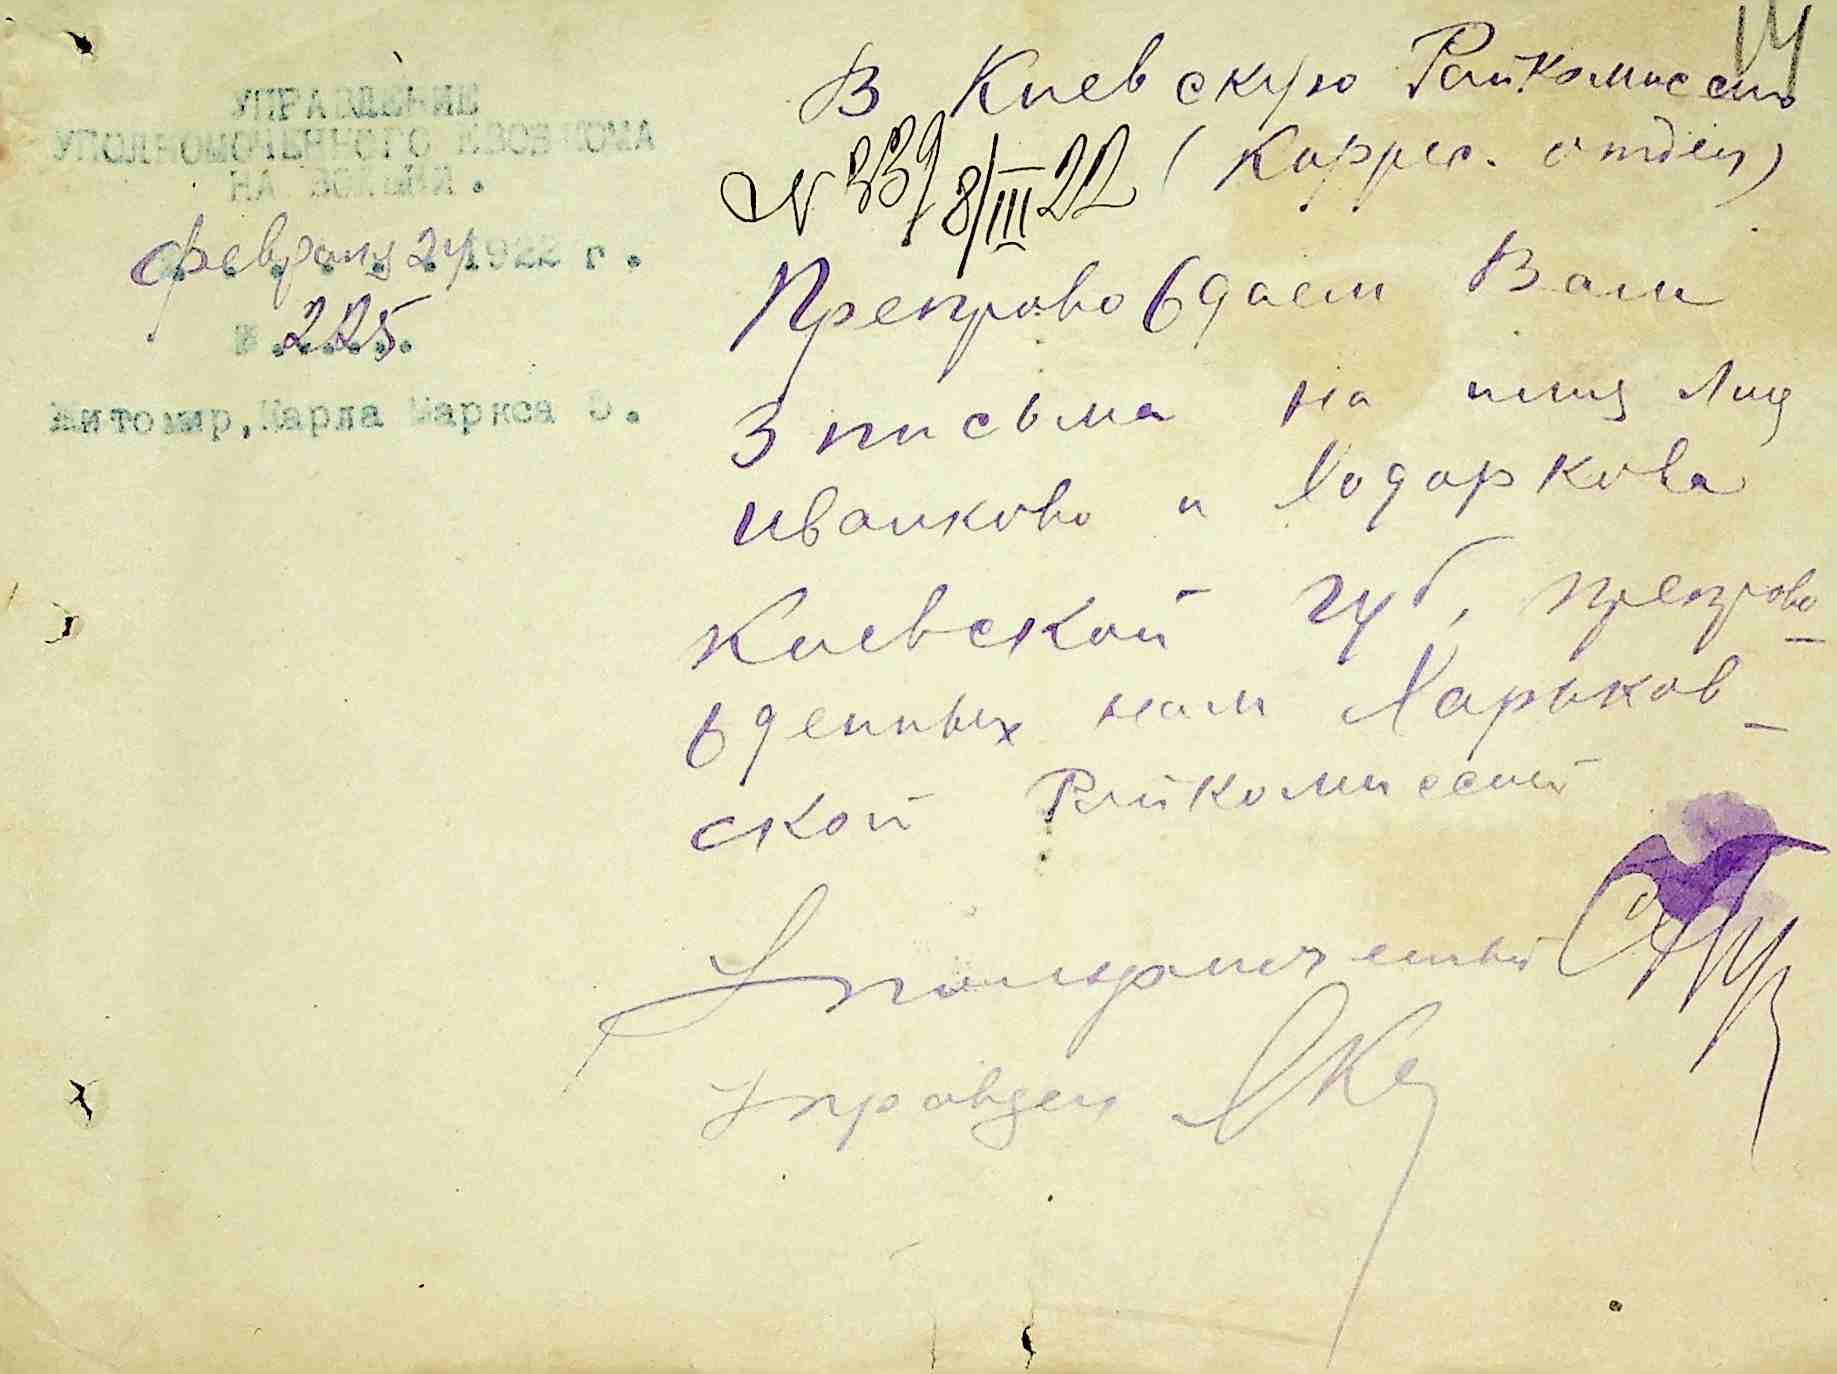 14
УПРАВЛЕНИЕ
УПОЛНОМОЧЕННОГО ЕВОБКОМА
НА ВОЛЫНИ.
февраля 24 1922 г.
№ 225
Житомир, Карла Маркса 5.
В Киевскую Райкомиссию
(Коррес. отдел)
N 339 8/III 22
Препровождаем Вам
3 письма на имя лиц
Иванково и Ходоркова
Киевской губ, препрово-
жденных нам Харьков-
ской Райкомиссией
Уполномоченный
Управдел